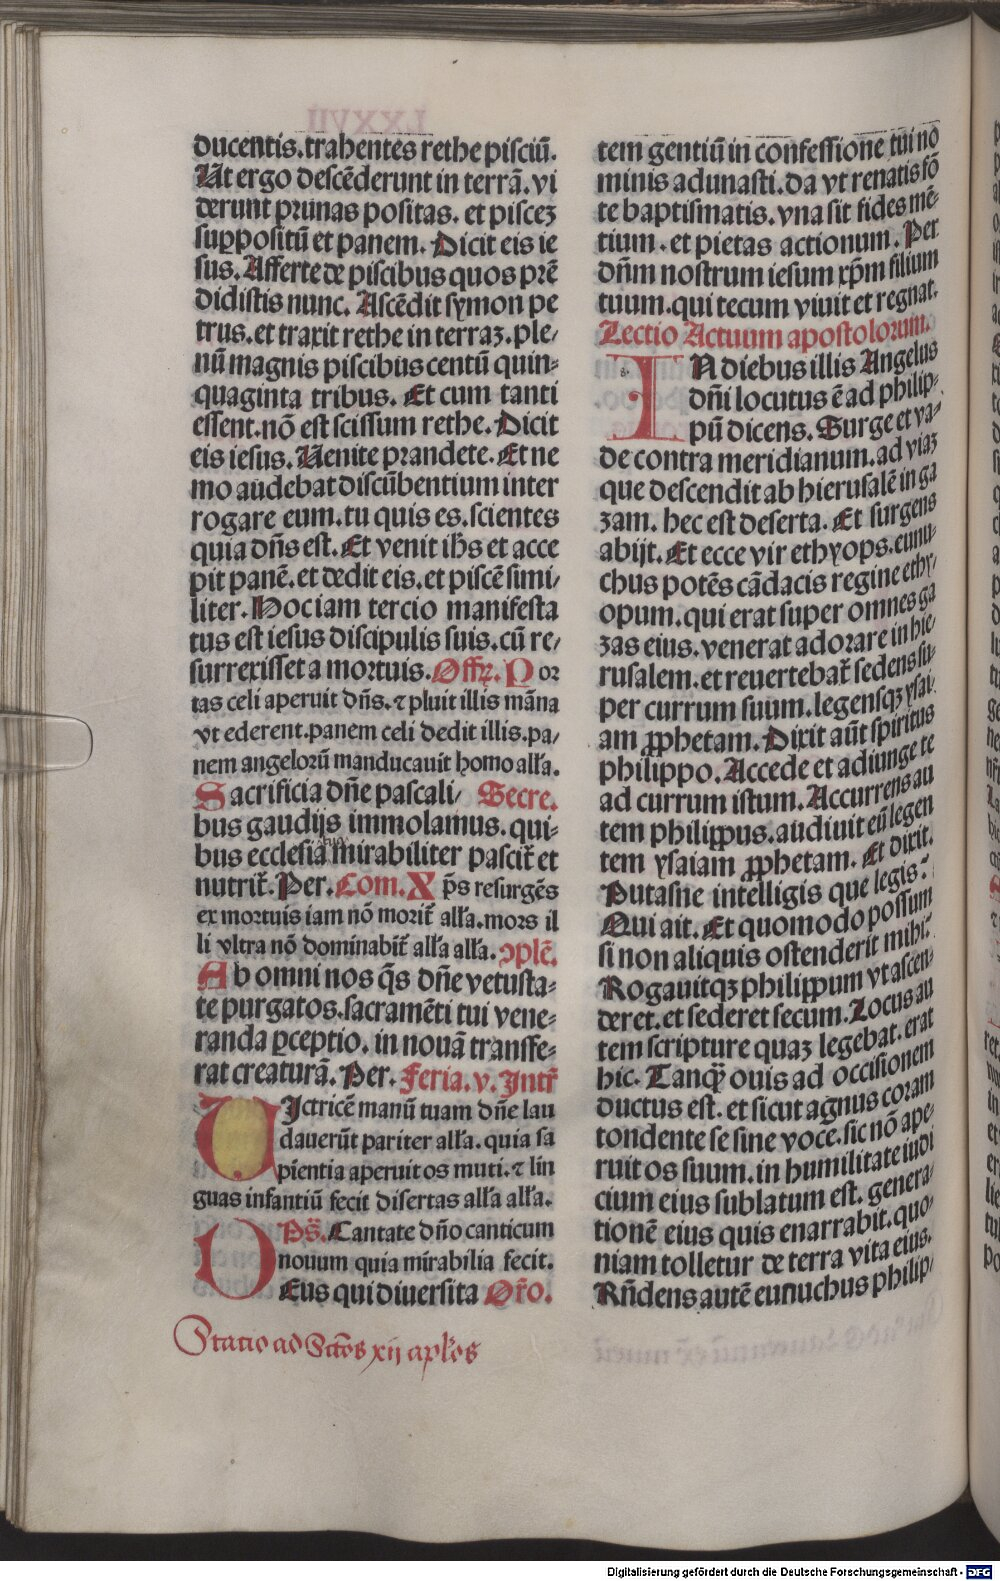 ducentis.trahentes rethe pisciū.
Ut ergo descēderunt in terrā. vi
derunt prunas positas. et piscez
suppositū et panem. Dicit eis ie
sus. Afferte de piscibus quos prē
didistis nunc. Ascēdit symon pe
trus. et traxit rethe in terraz. ple/
nū magnis piscibus centū quin-
quaginta tribus. Et cum tanti
essent. nō est scissum rethe. Dicit
eis iesus. Uenite prandete. Et ne
mo audebat discūbentium inter
rogare eum. tu quis es. scientes
quia dn̄s est. Et venit ih̄s et acce
pit panē. et dedit eis. et piscē simi/
liter. Hoc iam tercio manifesta
tus est iesus discipulis suis. cū re/
surrexisset a mortuis. Offꝝ. Por
tas celi aperuit dn̄s. ⁊ pluit illis māna
vt ederent. panem celi dedit illis. pa/
nem angelorū manducauit homo alła.
Sacrificia dn̄e pascali/ Secre.
bus gaudijs immolamus. qui-
bus ecclesia mirabiliter pascit̄ et
nutrit̄. Per. Com. Xp̄s resurgēs
ex mortuis iam nō morit̄ alła. mors il
li vltra nō dominabit̄ alła alła. ꝯplē.
Ab omni nos q̄s dn̄e vetusta-
te purgatos. sacramēti tui vene-
randa ꝑceptio. in nouā transfe-
rat creaturā. Per. Feria. v. Intr̄
UIctricē manū tuam dn̄e lau
dauerūt pariter alła. quia sa
pientia aperuit os muti. ⁊ lin
guas infantiū fecit disertas alła alła.
Ps̄. Cantate dn̄o canticum
nouum quia mirabilia fecit.
DEus qui diuersita Or̄o.
Statio ad Sctōs xij aplōs
tem gentiū in confessione tui nō
minis adunasti. da vt renatis fō
te baptismatis. vna sit fides mē-
tium. et pietas actionum. Per
dn̄m nostrum iesum xp̄m filium
tuum. qui tecum viuit et regnat.
Lectio Actuum apostolorum.
IN diebus illis Angelus
dn̄i locutus ē ad philip-
pū dicens. Surge et va-
de contra meridianum. ad viaz
que descendit ab hierusalē in ga
zam. hec est deserta. Et surgens
abijt. Et ecce vir ethyops. eunu-
chus potēs cādacis regine ethy/
opum. qui erat super omnes ga
zas eius. venerat adorare in hie/
rusalem. et reuertebat̄ sedens su-
per currum suum. legensqz ysai
am ꝓphetam. Dixit aūt spiritus
philippo. Accede et adiunge te
ad currum istum. Accurrens au
tem philippus. audiuit eū legen
tem ysaiam ꝓphetam. Et dixit.
Putasne intelligis que legis?
Qui ait. Et quomodo possum
si non aliquis ostenderit mihi-
Rogauitqz philippum vt ascen-
deret. et sederet secum. Locus au
tem scripture quaz legebat. erat
hic. Tanq̄ ouis ad occisionem
ductus est. et sicut agnus coram
tondente se sine voce. sic nō ape-
ruit os suum. in humilitate iudi
cium eius sublatum est. genera-
tionē eius quis enarrabit. quo-
niam tolletur de terra vita eius.
Rn̄dens autē eunuchus philip/
Digitalisierung gefördert durch die Deutsche Forschungsgemeinschaft - DFG